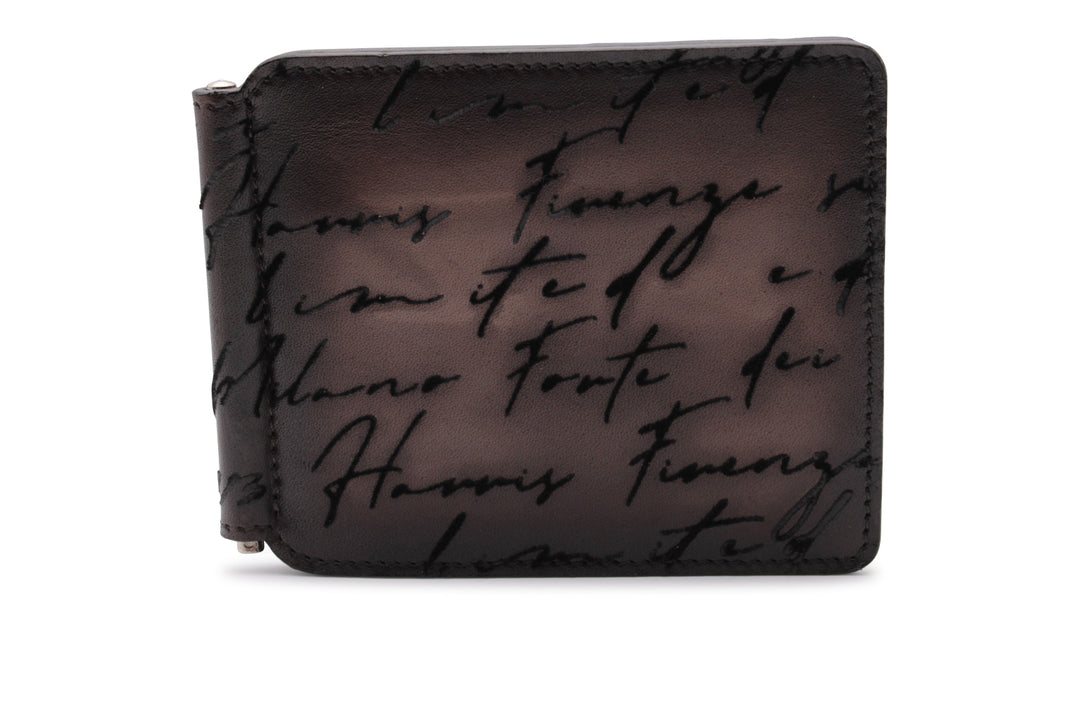 limited
Harris Firenze
limited
Milano Forte dei
Harris Firenze
limited